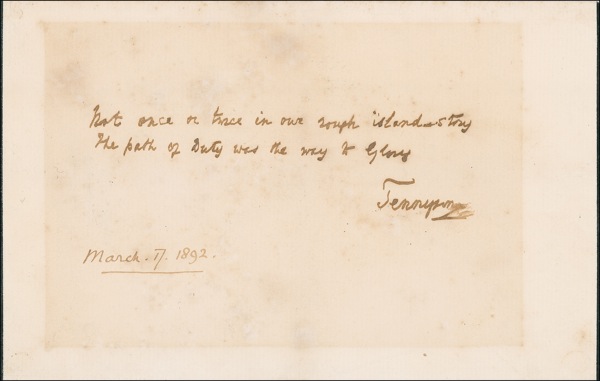 Not once or twice in our rough island-story
The path of Duty was the way to Glory
Tennyson
March. 17. 1892.